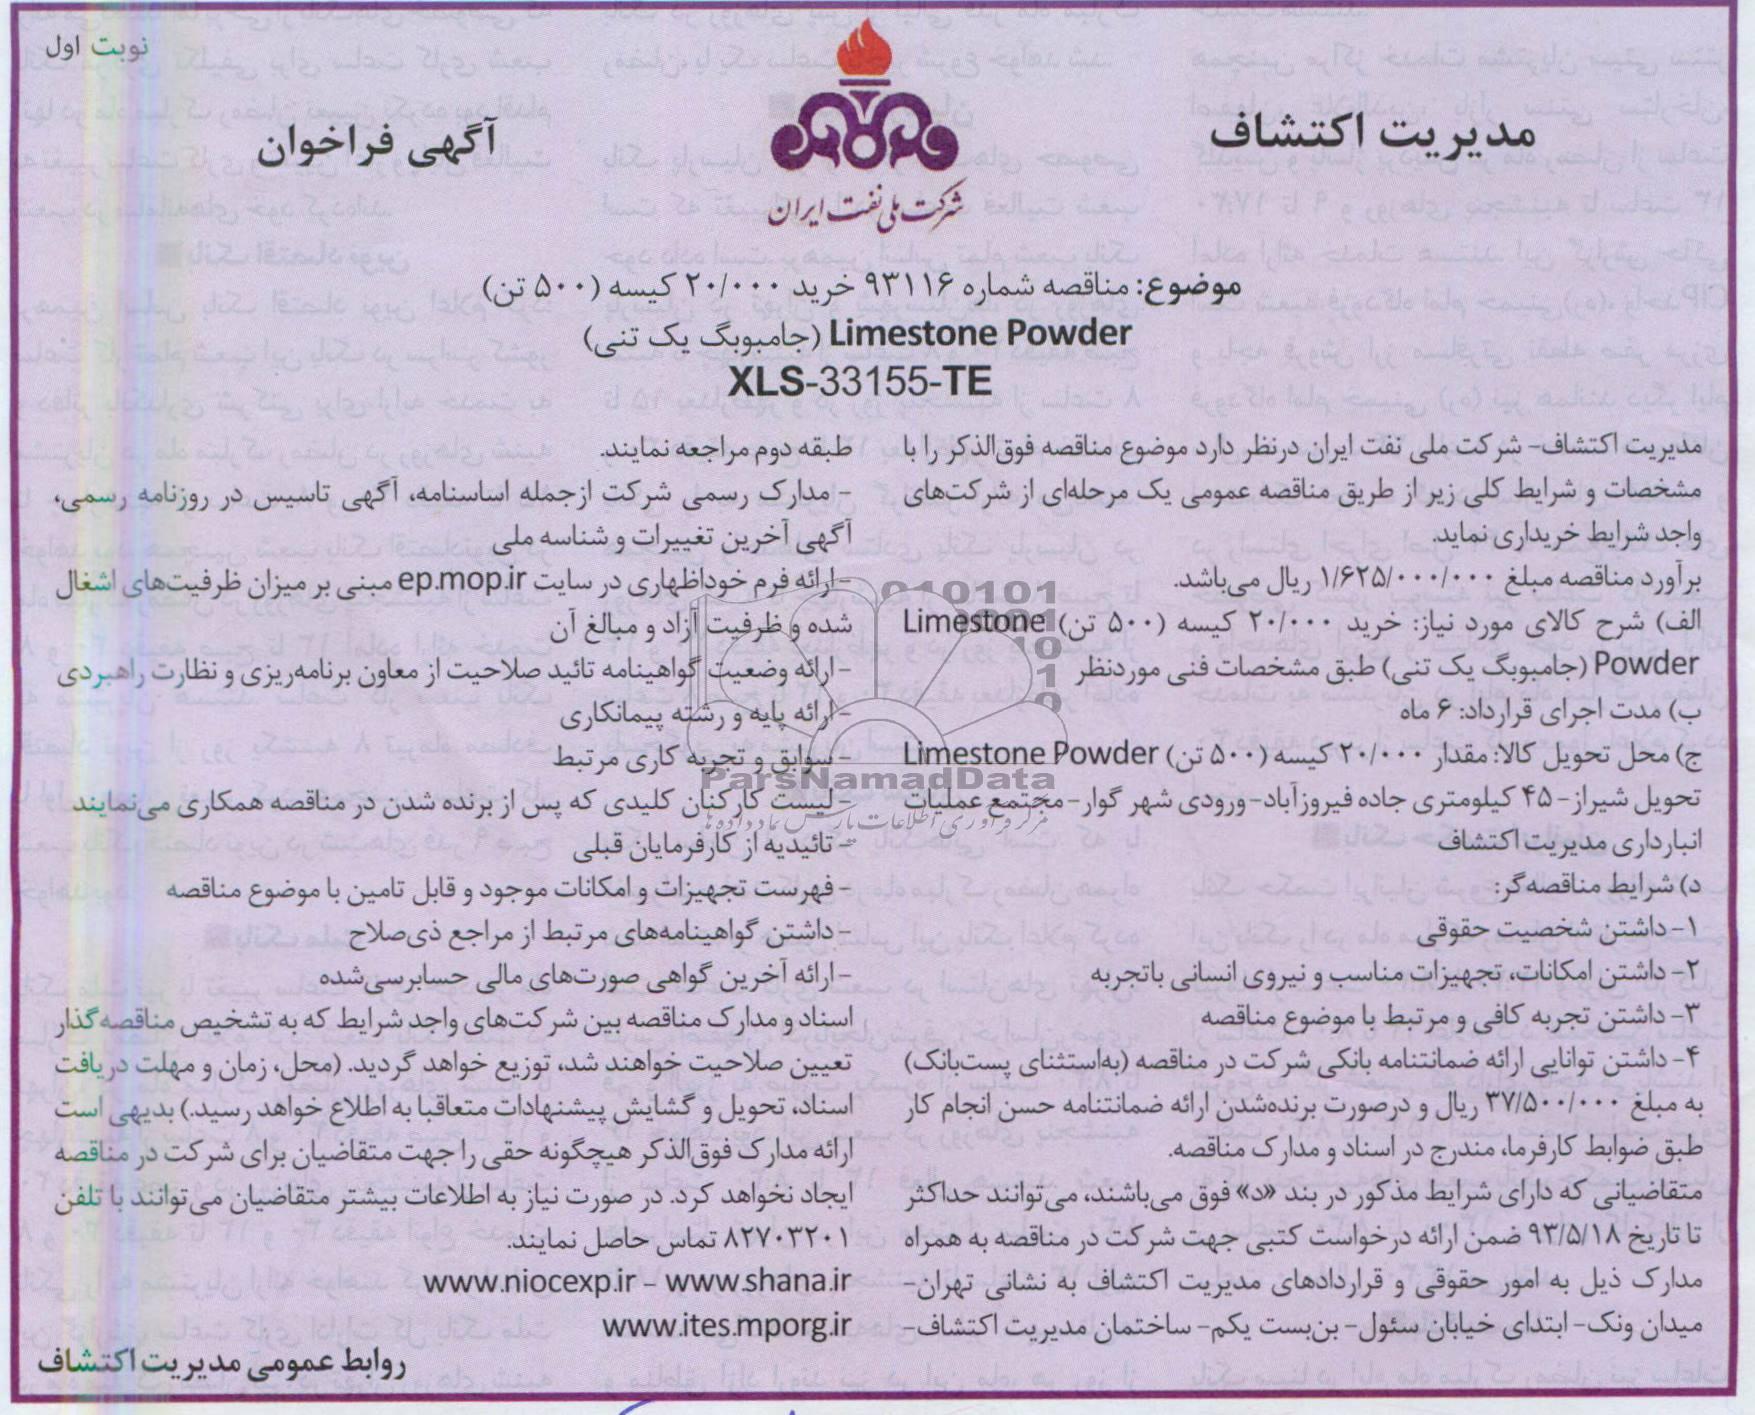 نوبت اول
مدیریت اکتشاف
شرکت ملی نفت ایران
آگهی فراخوان
موضوع: مناقصه شماره ۹۳۱۱۶ خرید ۲۰/۰۰۰ کیسه (۵۰۰ تن)
Limestone Powder (جامبوبگ یک تنی)
XLS-33155-TE
مدیریت اکتشاف- شرکت ملی نفت ایران درنظر دارد موضوع مناقصه فوق‌الذکر را با
مشخصات و شرایط کلی زیر از طریق مناقصه عمومی یک مرحله‌ای از شرکت‌های
واجد شرایط خریداری نماید.
برآورد مناقصه مبلغ ۱/۶۲۵/۰۰۰/۰۰۰ ریال می‌باشد.
الف) شرح کالای مورد نیاز: خرید ۲۰/۰۰۰ کیسه (۵۰۰ تن) Limestone
Powder (جامبوبگ یک تنی) طبق مشخصات فنی موردنظر
ب) مدت اجرای قرارداد: ۶ ماه
ج) محل تحویل کالا: مقدار ۲۰/۰۰۰ کیسه (۵۰۰ تن) Limestone Powder
تحویل شیراز- ۴۵ کیلومتری جاده فیروزآباد-ورودی شهر گوار-مجتمع عملیات
انبارداری مدیریت اکتشاف
د) شرایط مناقصه‌گر:
۱- داشتن شخصیت حقوقی
۲- داشتن امکانات، تجهیزات مناسب و نیروی انسانی باتجربه
۳- داشتن تجربه کافی و مرتبط با موضوع مناقصه
۴- داشتن توانایی ارائه ضمانتنامه بانکی شرکت در مناقصه (به‌استثنای پست‌بانک)
به مبلغ ۳۷/۵۰۰/۰۰۰ ریال و درصورت برنده‌شدن ارائه ضمانتنامه حسن انجام کار
طبق ضوابط کارفرما، مندرج در اسناد و مدارک مناقصه.
متقاضیانی که دارای شرایط مذکور در بند «د» فوق می‌باشند، می‌توانند حداکثر
تا تاریخ ۹۳/۵/۱۸ ضمن ارائه درخواست کتبی جهت شرکت در مناقصه به همراه
مدارک ذیل به امور حقوقی و قراردادهای مدیریت اکتشاف به نشانی تهران-
میدان ونک- ابتدای خیابان سئول- بن‌بست یکم- ساختمان مدیریت اکتشاف-
طبقه دوم مراجعه نمایند.
- مدارک رسمی شرکت ازجمله اساسنامه، آگهی تاسیس در روزنامه رسمی،
آگهی آخرین تغییرات و شناسه ملی
-ارائه فرم خوداظهاری در سایت ep.mop.ir مبنی بر میزان ظرفیت‌های اشغال
شده و ظرفیت آزاد و مبالغ آن
-ارائه وضعیت گواهینامه تائید صلاحیت از معاون برنامه‌ریزی و نظارت راهبردی
-ارائه پایه و رشته پیمانکاری
-سوابق و تجربه کاری مرتبط
-لیست کارکنان کلیدی که پس از برنده شدن در مناقصه همکاری می‌نمایند
-تائیدیه از کارفرمایان قبلی
- فهرست تجهیزات و امکانات موجود و قابل تامین با موضوع مناقصه
-داشتن گواهینامه‌های مرتبط از مراجع ذی‌صلاح
-ارائه آخرین گواهی صورت‌های مالی حسابرسی‌شده
اسناد و مدارک مناقصه بین شرکت‌های واجد شرایط که به تشخیص مناقصه‌گذار
تعیین صلاحیت خواهند شد، توزیع خواهد گردید. (محل، زمان و مهلت دریافت
اسناد، تحویل و گشایش پیشنهادات متعاقبا به اطلاع خواهد رسید.) بدیهی است
ارائه مدارک فوق‌الذکر هیچگونه حقی را جهت متقاضیان برای شرکت در مناقصه
ایجاد نخواهد کرد. در صورت نیاز به اطلاعات بیشتر متقاضیان می‌توانند با تلفن
۸۲۷۰۳۲۰۱ تماس حاصل نمایند.
www.niocexp.ir - www.shana.ir
www.ites.mporg.ir
روابط عمومی مدیریت اکتشاف
ParsNamadData
مرکز فرآوری اطلاعات پارس نماد داده ها